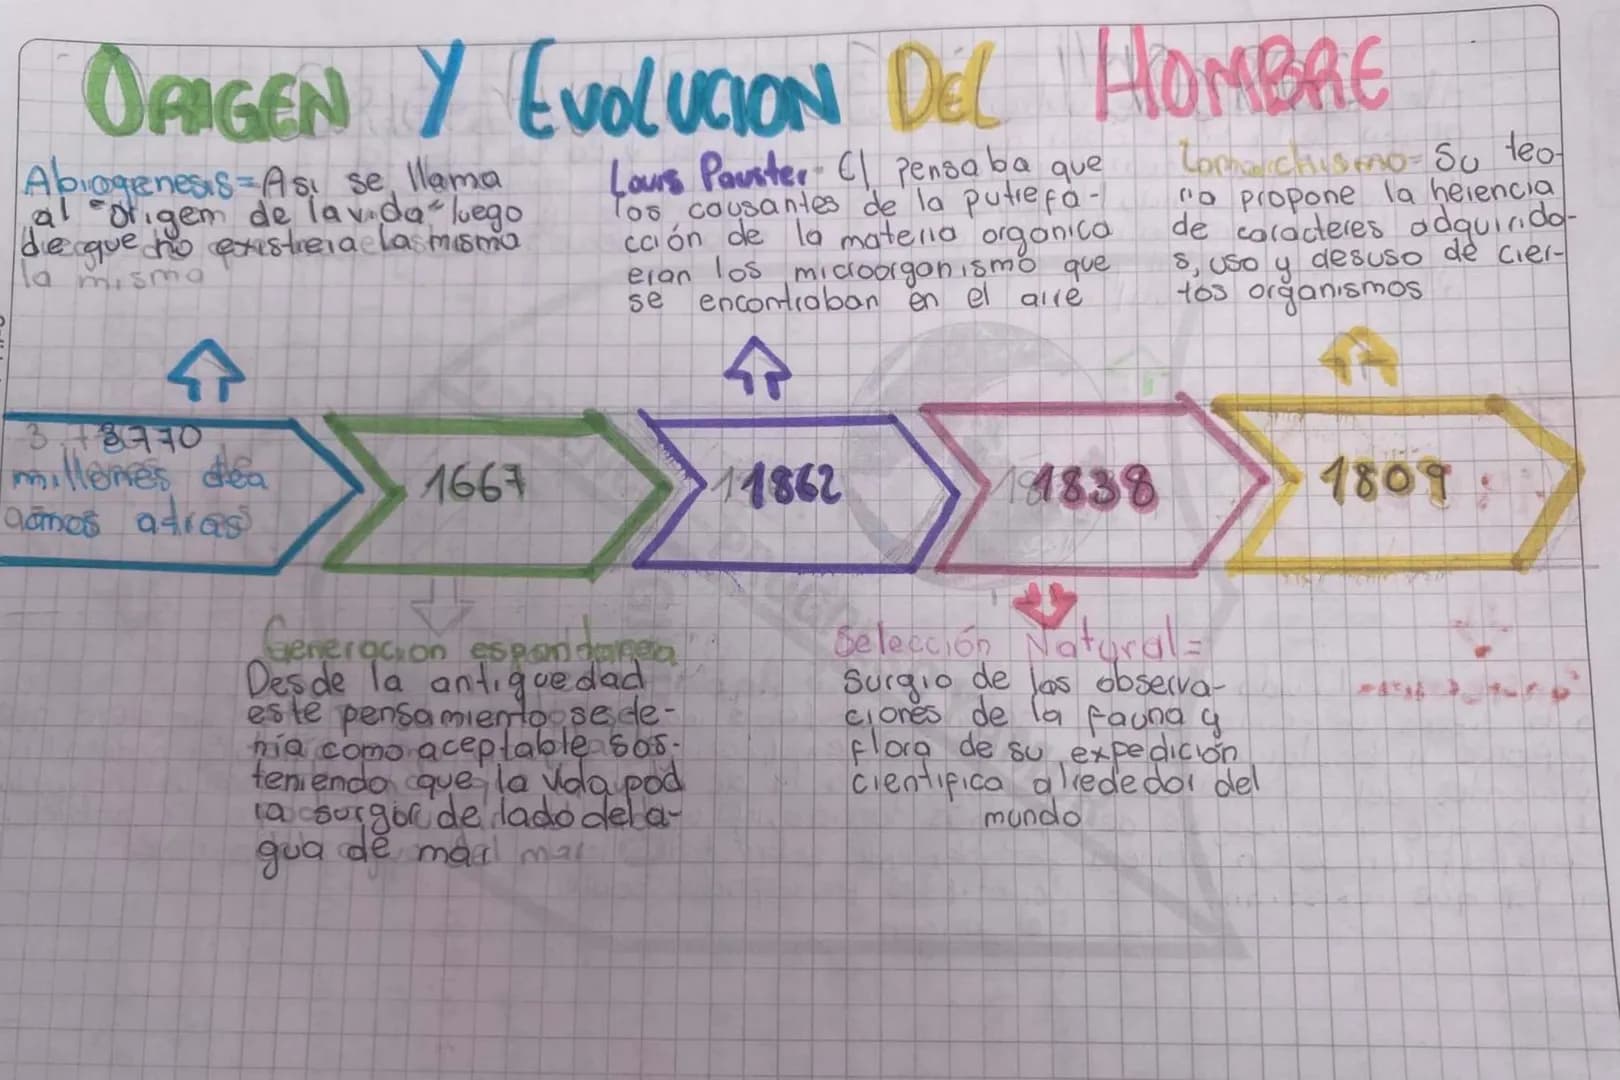 ORIGEN Y EVOLUCION DEL HOMBRE
Abiogenesis=Asi se llama
al "origem de la vida" luego
de que no existiera la misma
la misma
Lours Pauster- El pensaba que
los causantes de la putrefa-
cción de la materia organica
eran los microorganismo que
se encontraban en el aire
Lamarckismo= Su teo-
ria propone la herencia
de caracteres adquirido-
s, uso y desuso de cier-
tos organismos
3770
millones de
atras
1667
1862
1838
1809
Generacion espontanea
Desde la antiguedad
este pensamiento se de-
nia como aceptable sos-
teniendo que la vida pod
ia surgir de lado del a-
gua de mar mar
Selección Natural=
Surgio de las observa-
ciones de la fauna y
flora de su expedición
cientifica alrededor del
mundo